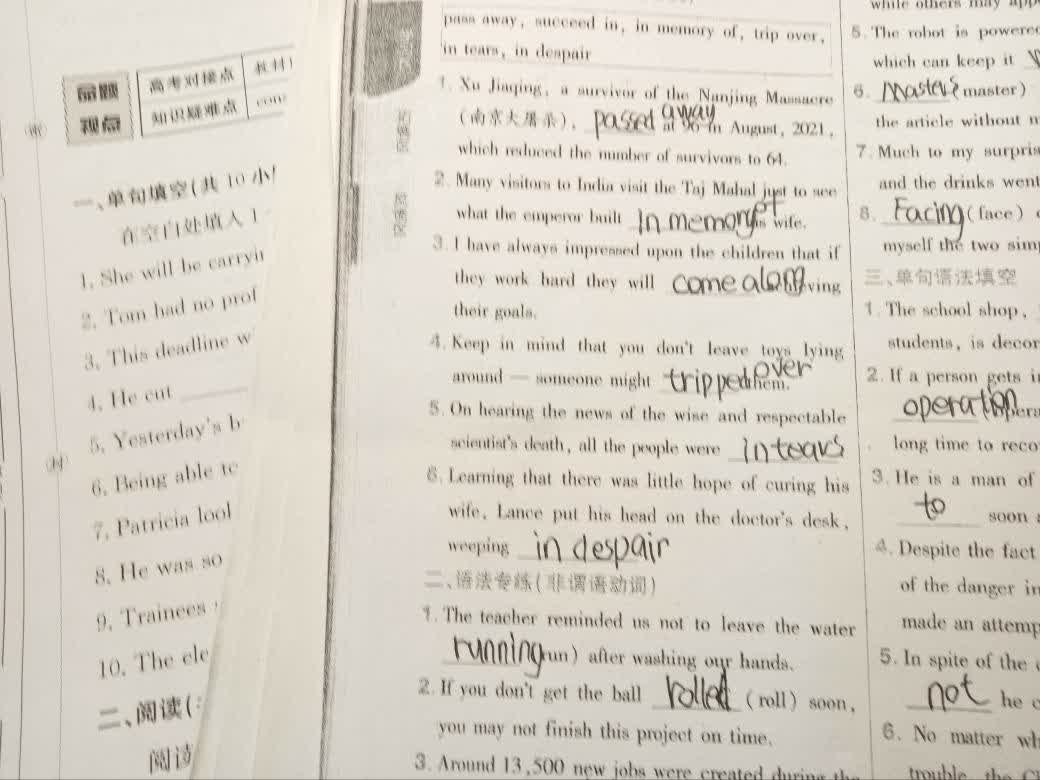 命题
视点
高考对接点
教材
知识疑难点
一、单句填空(共 10 小
在空白处填入 1
1. She will be carryin
2. Tom had no prof
3. This deadline w
4. He cut
5. Yesterday's b
6. Being able to
7. Patricia lool
8. He was so
9. Trainees
10. The ele
二、阅读(
阅读
pass away, succeed in, in memory of, trip over,
in tears, in despair
1. Xu Jiaqing, a survivor of the Nanjing Massacre
(南京大屠杀), passed away at 96 in August, 2021,
which reduced the number of survivors to 64.
2. Many visitors to India visit the Taj Mahal just to see
what the emperor built in memory of his wife.
3. I have always impressed upon the children that if
they work hard they will come along ving
their goals.
4. Keep in mind that you don't leave toys lying
around — someone might tripped over them.
5. On hearing the news of the wise and respectable
scientist's death, all the people were in tears
6. Learning that there was little hope of curing his
wife, Lance put his head on the doctor's desk,
weeping in despair
二、语法专练(非谓语动词)
1. The teacher reminded us not to leave the water
running run) after washing our hands.
2. If you don't get the ball rolled (roll) soon,
you may not finish this project on time.
3. Around 13,500 new jobs were created during the
while others may app
5. The robot is powered
which can keep it
6. (master)
the article without
7. Much to my surpris
and the drinks went
8. Facing (face)
myself the two simp
三、单句语法填空
1. The school shop,
students, is decor
2. If a person gets i
operation opera
long time to reco
3. He is a man of
to soon
4. Despite the fact
of the danger in
made an attemp
5. In spite of the
not he
6. No matter wh
trouble, the